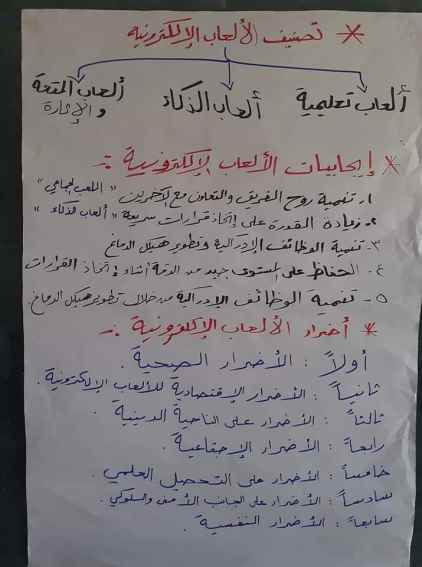 * تصنيف الألعاب الإلكترونية
ألعاب تعليمية ألعاب الذكاء ألعاب المتعة والإثارة
* إيجابيات الألعاب الإلكترونية :-
١. تنمية روح الفريق والتعاون مع الآخرين " اللعب الجماعي "
٢. زيادة القدرة على إتخاذ قرارات سريعة " ألعاب الذكاء "
٣. تنمية الوظائف الإدراكية وتطوير هيكل الدماغ
٤. الحفاظ على المستوى جيد من الدقة أثناء إتخاذ القرارات
٥ - تنمية الوظائف الإدراكية من خلال تطوير هيكل الدماغ.
* أضرار الألعاب الإلكترونية :-
أولاً : الأضرار الصحية .
ثانياً : الأضرار الإقتصادية للألعاب الإلكترونية .
ثالثاً : الأضرار على الناحية الدينية .
رابعاً : الأضرار الإجتماعية .
خامساً : الأضرار على التحصيل العلمي .
سادساً : الأضرار على الجانب والسلوكي .
سابعاً : الأضرار النفسية .